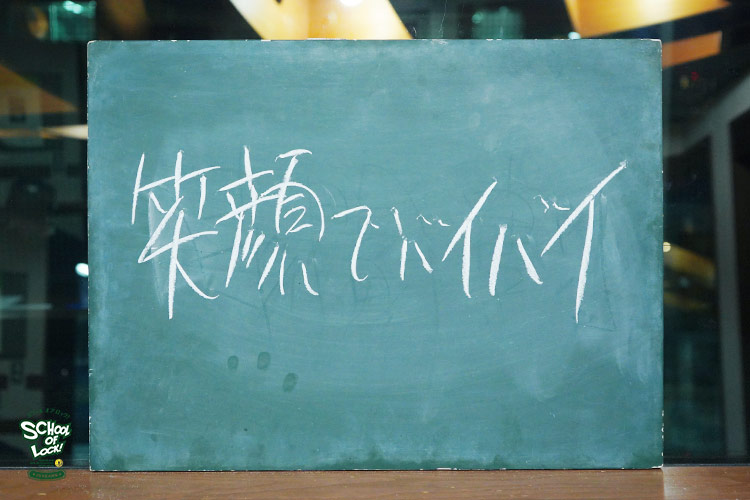 笑顔でバイバイ
SCHOOL
OF
LOCK!